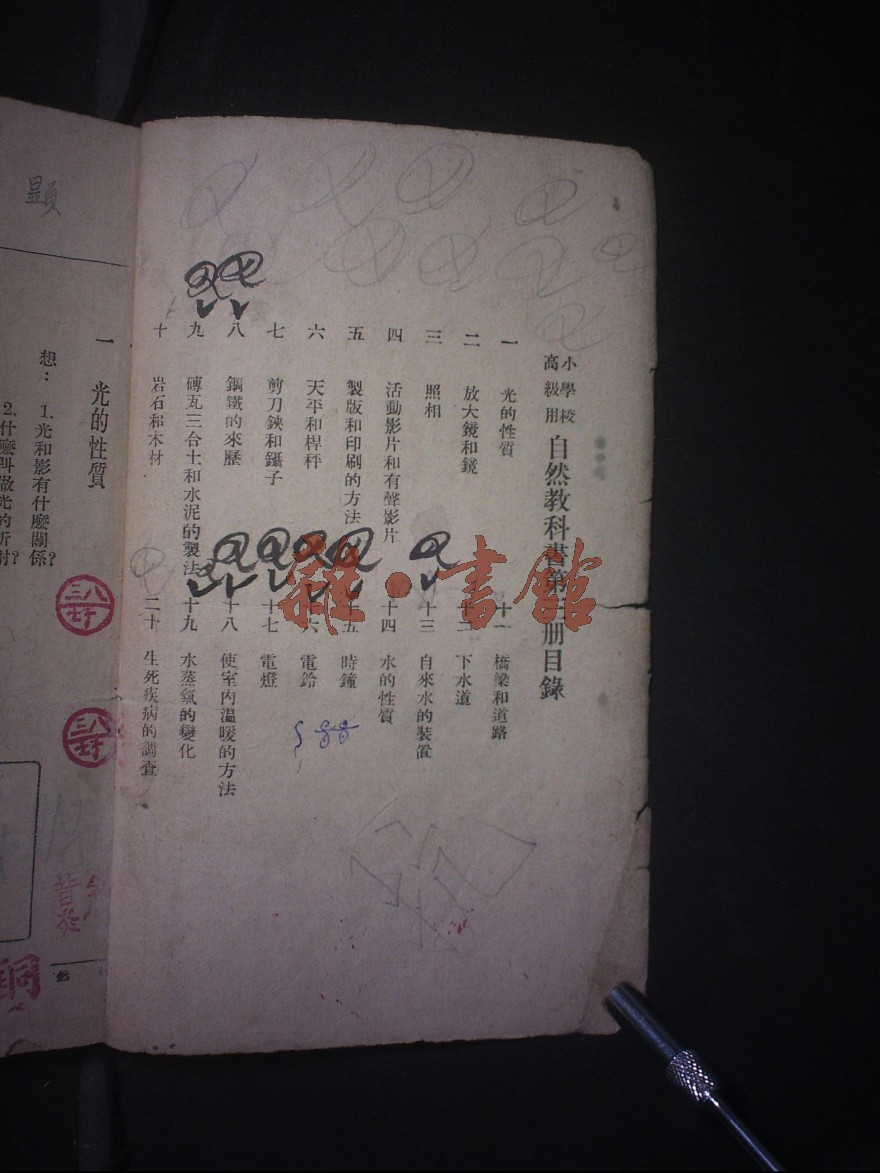 小學校
高級用
自然教科書第三册目錄
一 光的性質
二 放大鏡和鏡
三 照相
四 活動影片和有聲影片
五 製版和印刷的方法
六 天平和桿秤
七 剪刀鋏和鑷子
八 鋼鐵的來歷
九 磚瓦三合土和水泥的製法
十 岩石和木材
十一 橋梁和道路
十二 下水道
十三 自來水的裝置
十四 水的性質
十五 時鐘
十六 電鈴
十七 電燈
十八 使室内温暖的方法
十九 水蒸氣的變化
二十 生死疾病的調查
雜·書館
顯
一 光的性質
想：1.光和影有什麼關係？
2.什麼叫做光的折射？